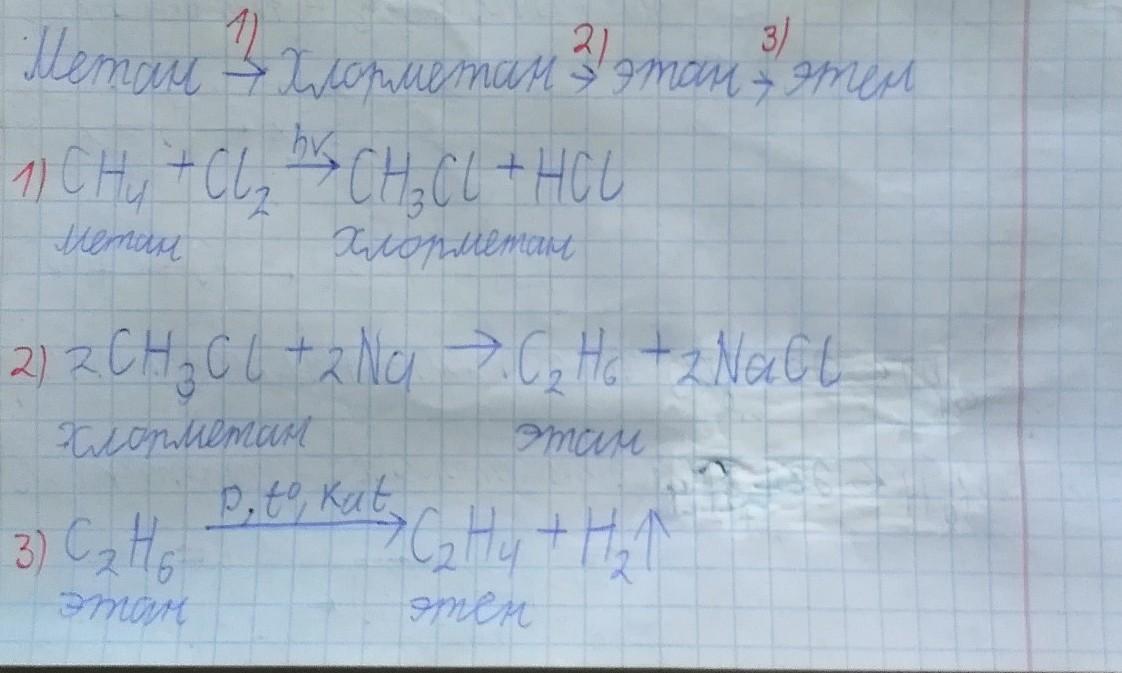 Метан 1) → Хлорметан 2) → этан 3) → этен
1) CH₄ + Cl₂ hν → CH₃Cl + HCl
метан хлорметан
2) 2CH₃Cl + 2Na → C₂H₆ + 2NaCl
хлорметан этан
3) C₂H₆ p, t°, kat → C₂H₄ + H₂↑
этан этен